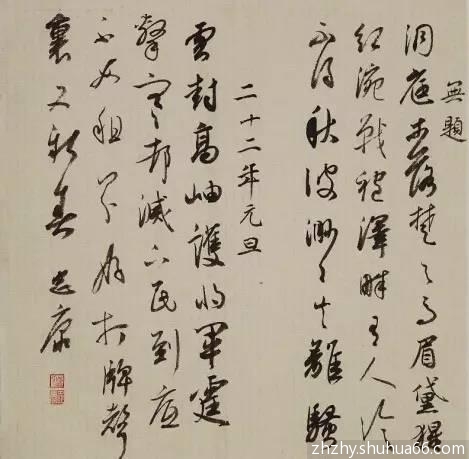 無題
洞庭木落楚天高眉黛猩
紅涴戰袍澤畔有人吟
不得秋波渺々失離騷
二十二年元旦
雲封高岫護將軍霆
擊寒邨滅下民到底
不如租界好打牌聲
裏又新春 志康
zhzhy.shuhua66.com